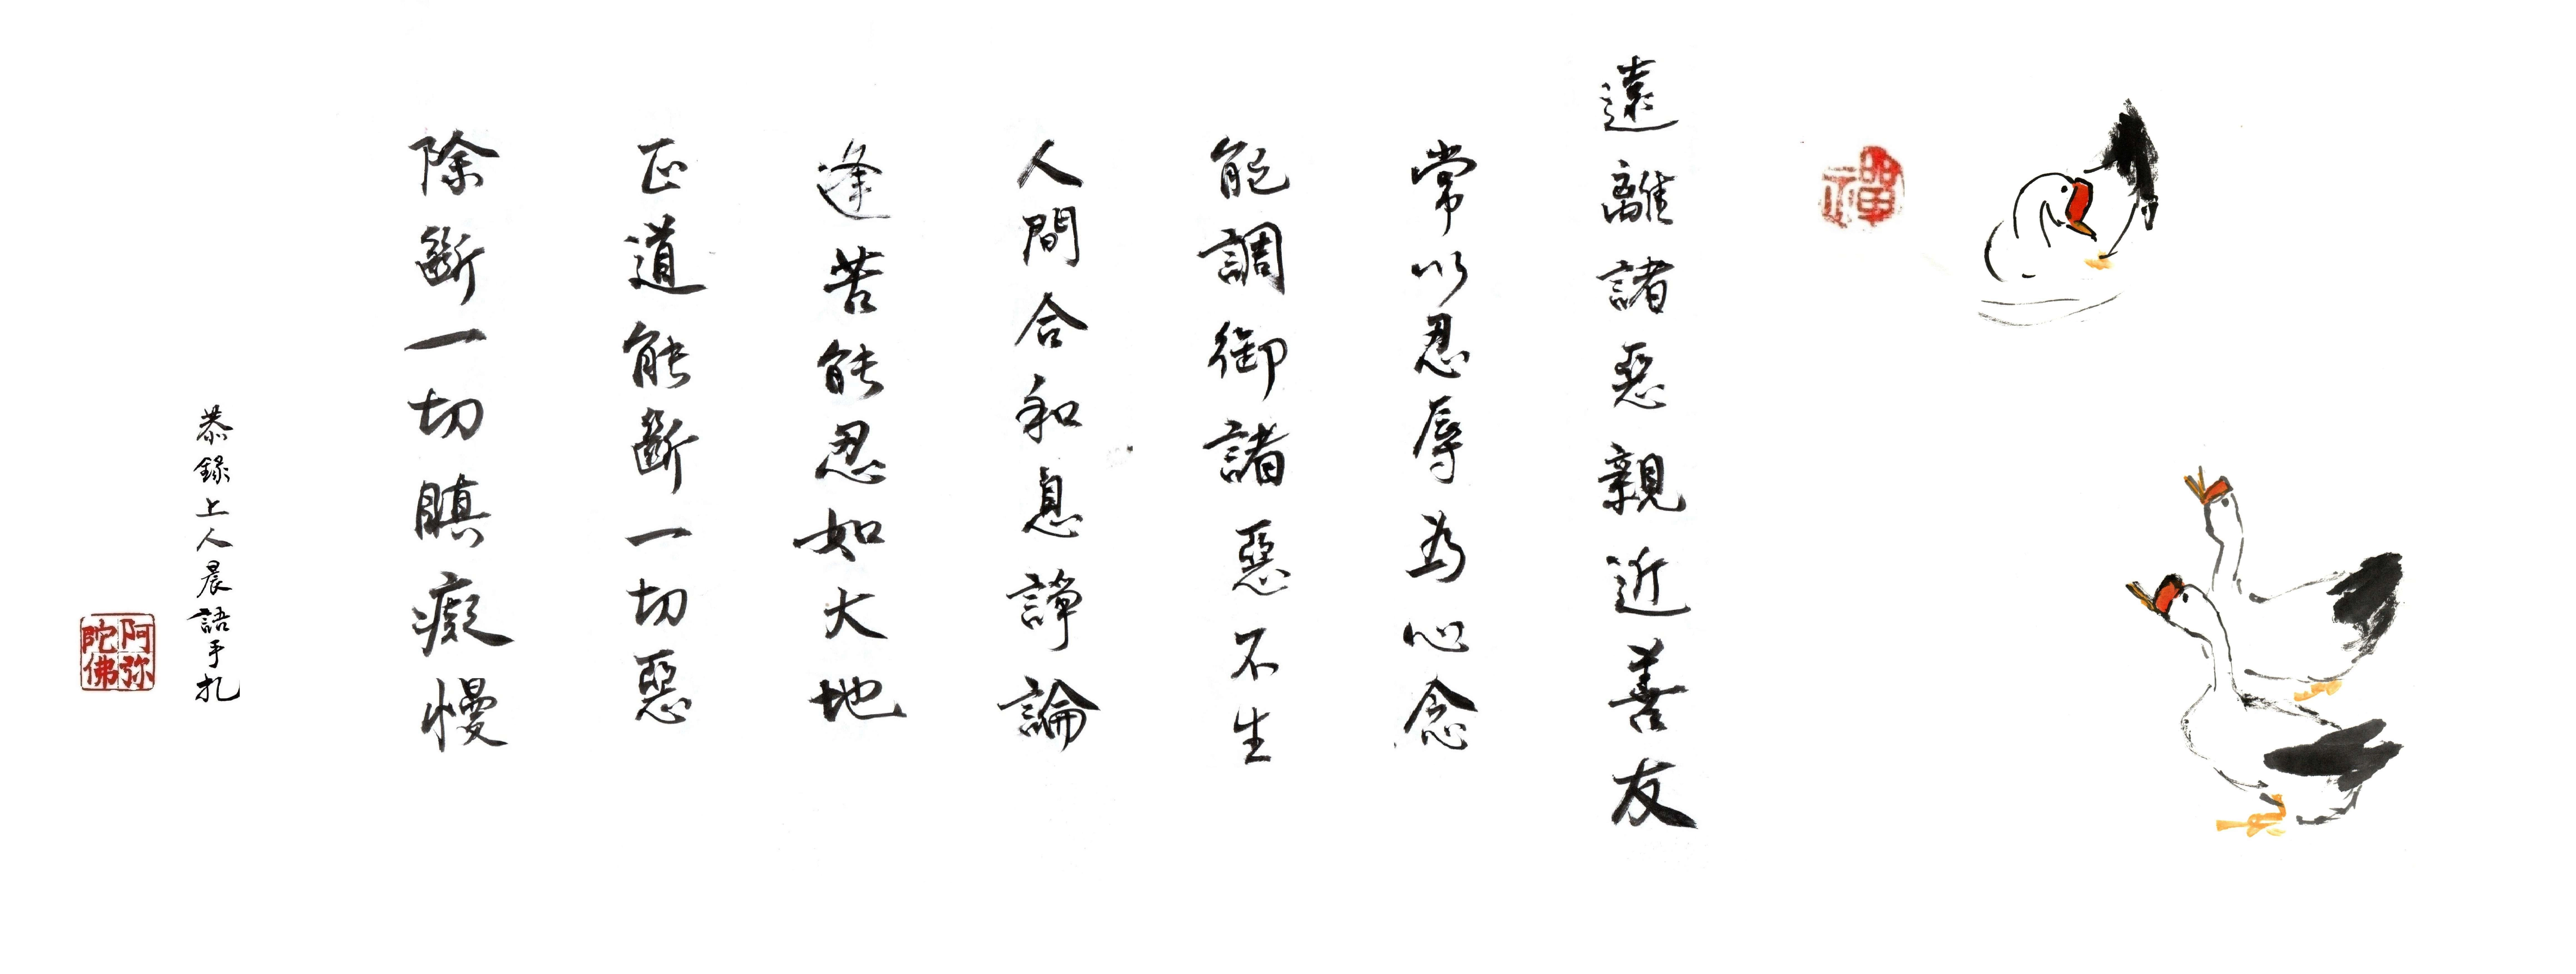 禪
遠離諸惡親近善友
常以忍辱為心念
能調御諸惡不生
人間合和息諍論
逢苦能忍如大地
正道能斷一切惡
除斷一切瞋癡慢
恭錄上人晨語手札
阿弥陀佛